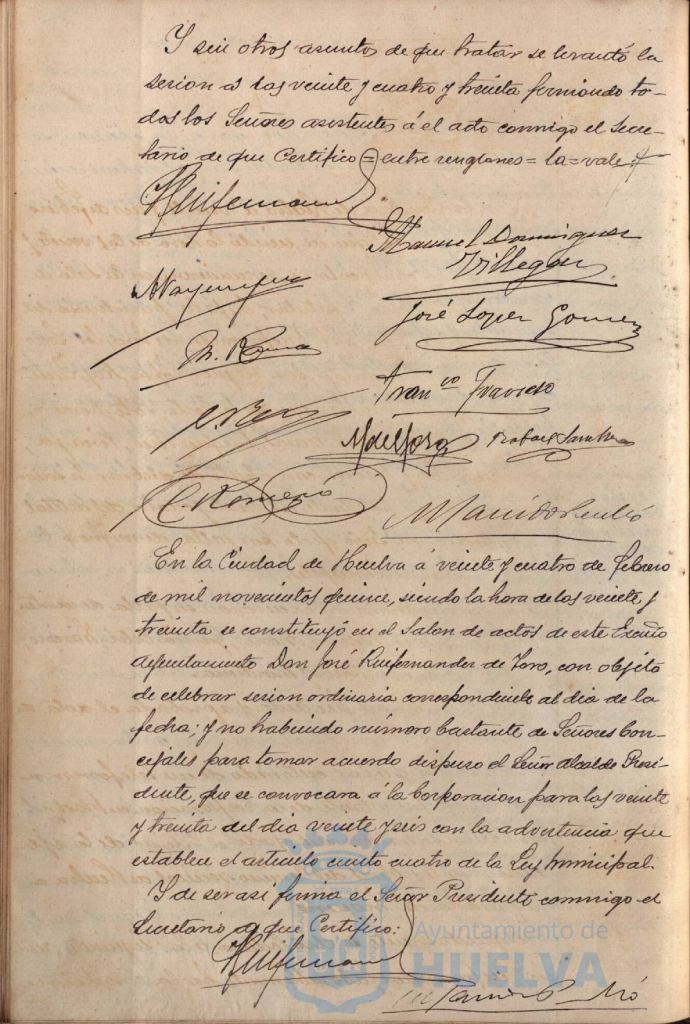 Y sin otros asuntos de que tratar se levantó la
sesion á las veinte y cuatro y treinta firmando to-
dos los Señores asistentes á el acto conmigo el Secre-
tario de que Certifico = entre renglones = la = vale
Manuel Dominguez
Villegas
José Lopez Gomez
M. Roma
Fran co
C. Romero
En la Ciudad de Huelva á veinte y cuatro de febrero
de mil novecientos quince, siendo la hora de las veinte y
treinta se constituyó en el Salon de actos de este Excmo
Ayuntamiento Don José Ruifernandez de Toro, con objeto
de celebrar sesion ordinaria correspondiente al dia de la
fecha; y no habiendo número bastante de Señores Con-
cejales para tomar acuerdo dispuso el Señor Alcalde Presi-
dente, que se convocara á la Corporacion para las veinte
y treinta del dia veinte y seis con la advertencia que
establece el articulo ciento cuatro de la Ley Municipal.
Y de ser asi firma el Señor Presidente conmigo el
Secretario de que Certifico:
Ayuntamiento de
HUELVA